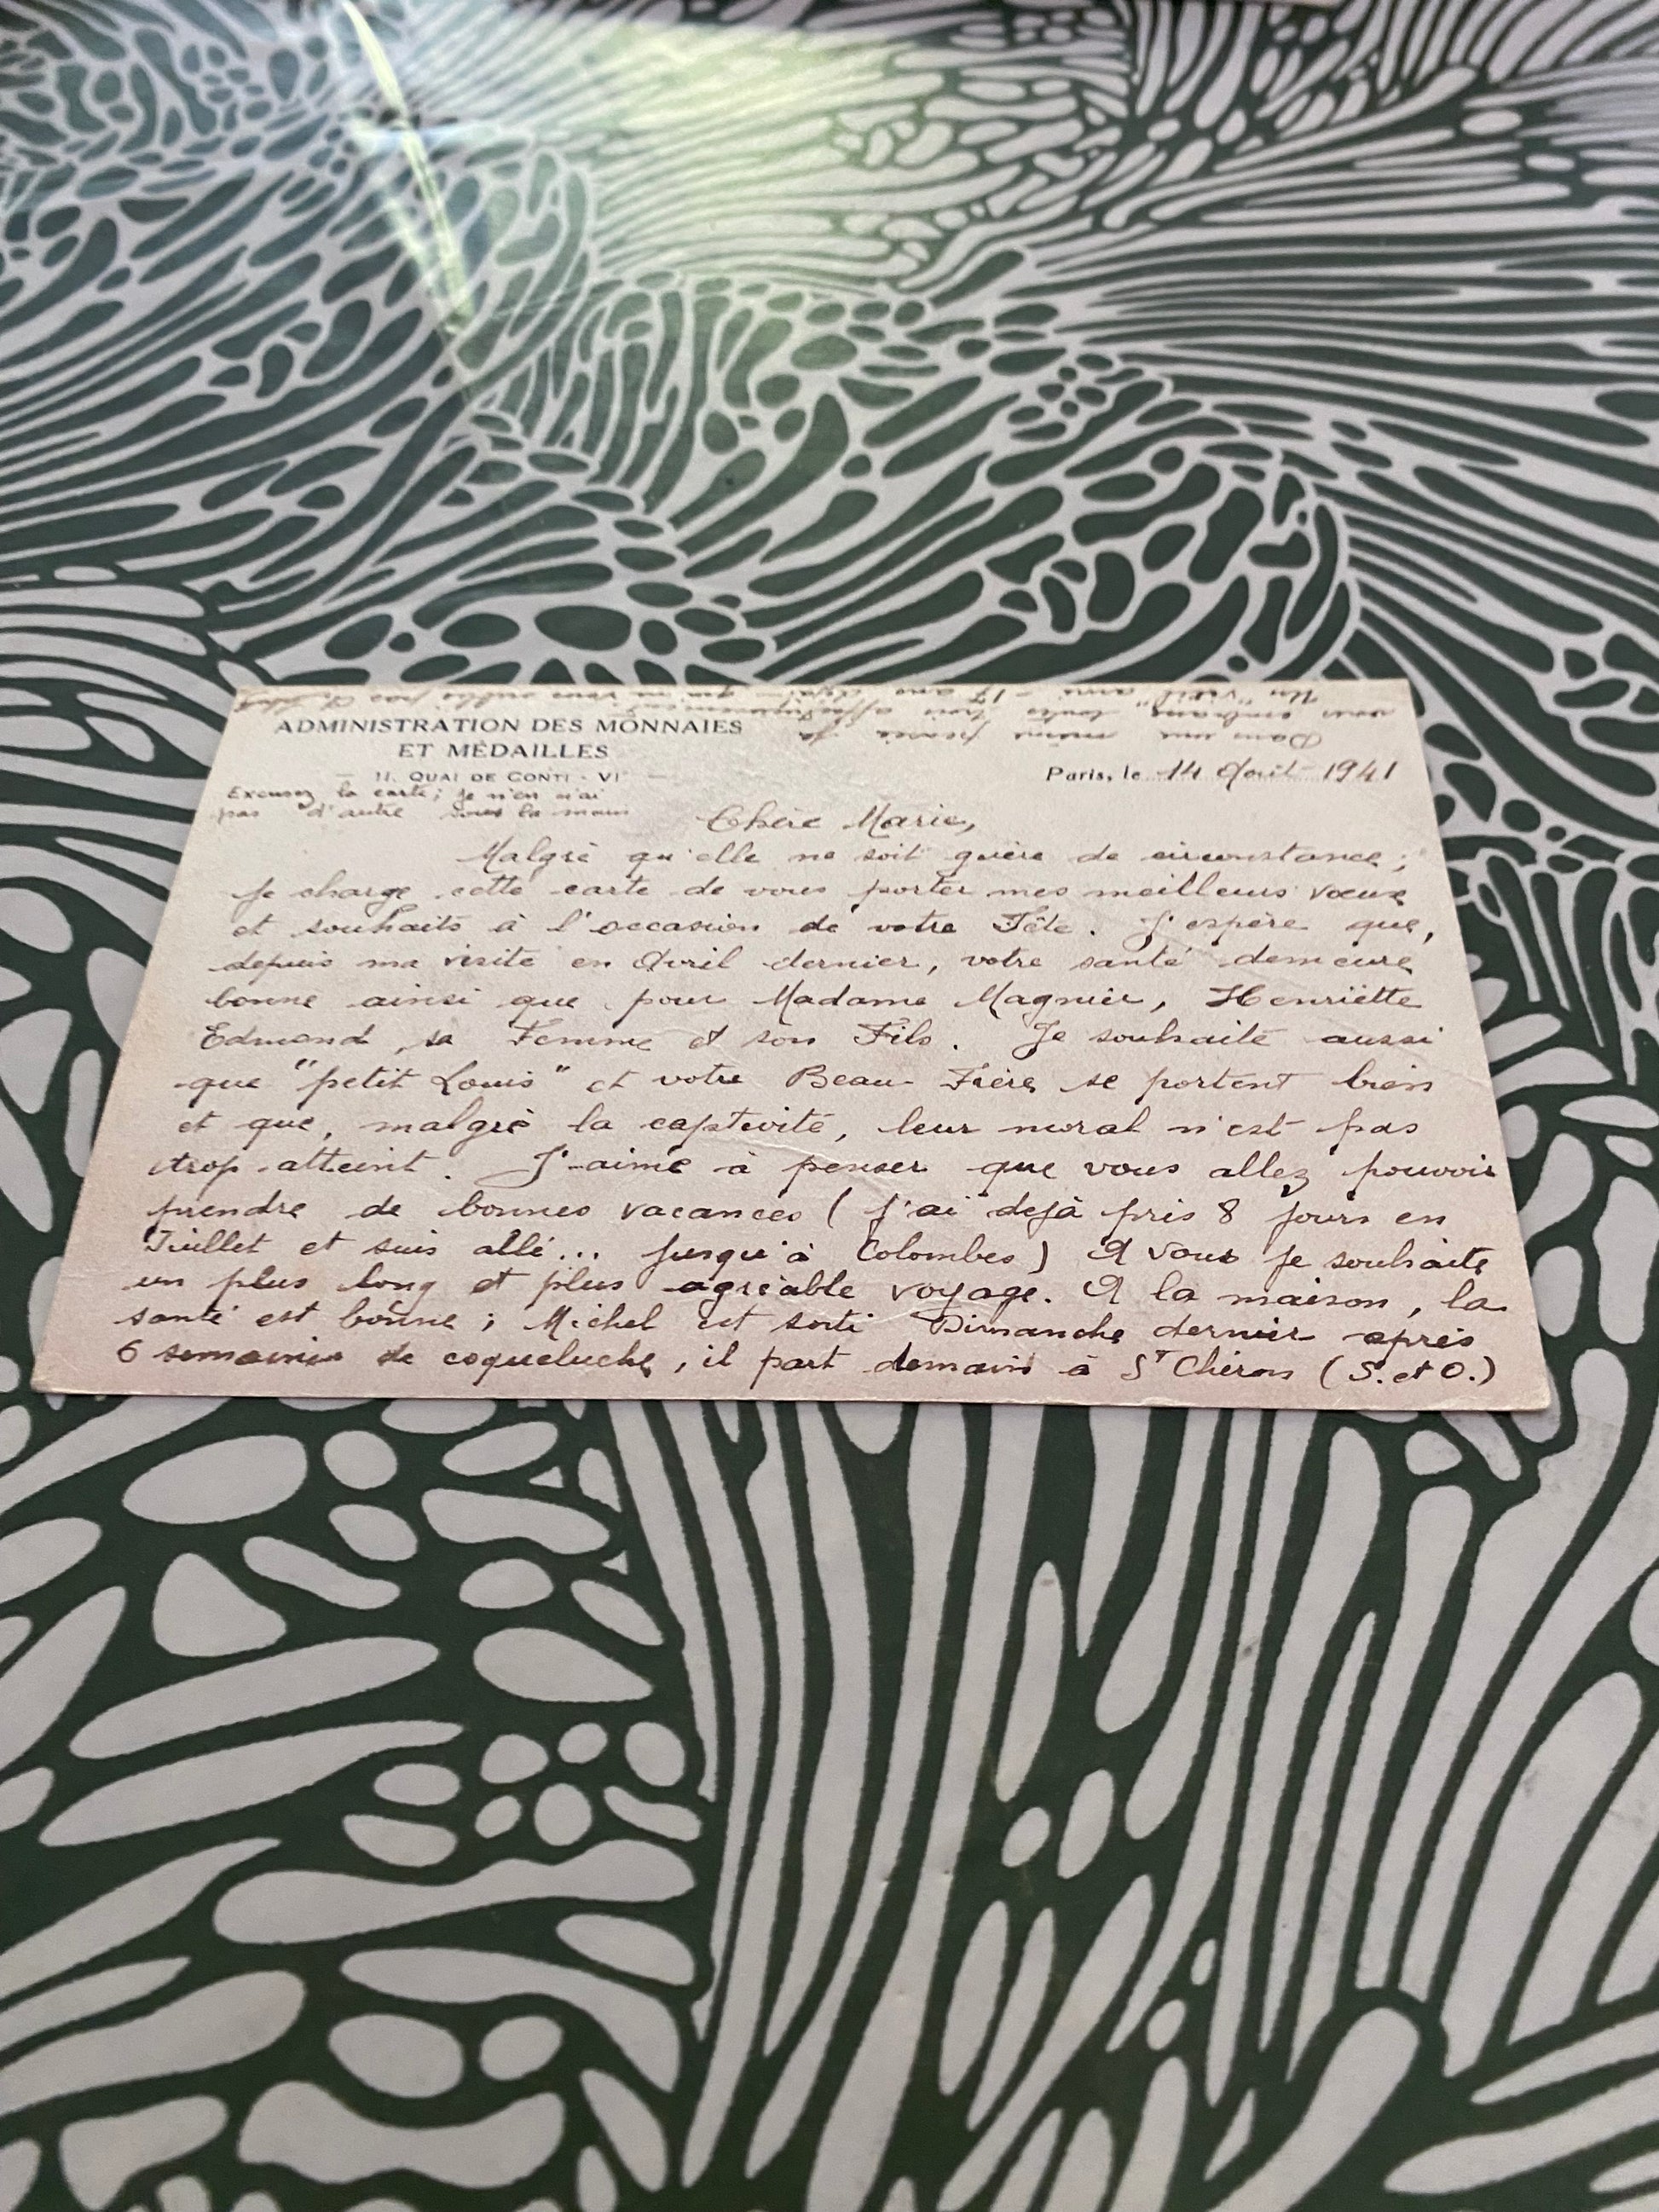 ADMINISTRATION DES MONNAIES
ET MÉDAILLES
11, QUAI DE CONTI - VI
Paris, le 14 Août 1941
Excusez la carte; je n'en n'ai
pas d'autre sous la main
Chère Marie,
Malgré qu'elle ne soit guère de circonstance;
je charge cette carte de vous porter mes meilleurs vœux
et souhaits à l'occasion de votre Fête. J'espère que,
depuis ma visite en Avril dernier, votre santé demeure
bonne ainsi que pour Madame Magnier, Henriette
Edmond, sa Femme et son Fils. Je souhaite aussi
que "petit Louis" et votre Beau-Frère se portent bien
et que, malgré la captivité, leur moral n'est pas
trop atteint. J'aime à penser que vous allez pouvoir
prendre de bonnes vacances (j'ai déjà pris 8 jours en
Juillet et suis allé... jusqu'à Colombes) A vous je souhaite
un plus long et plus agréable voyage. A la maison, la
santé est bonne; Michel est sorti Dimanche dernier après
6 semaines de coqueluche, il part demain à St Chéron (S. et O.)
Dans une même pensée je
vous embrasse toutes trois affectueusement
Un "vieil ami" - 17 ans déjà - qui ne vous oublie pas